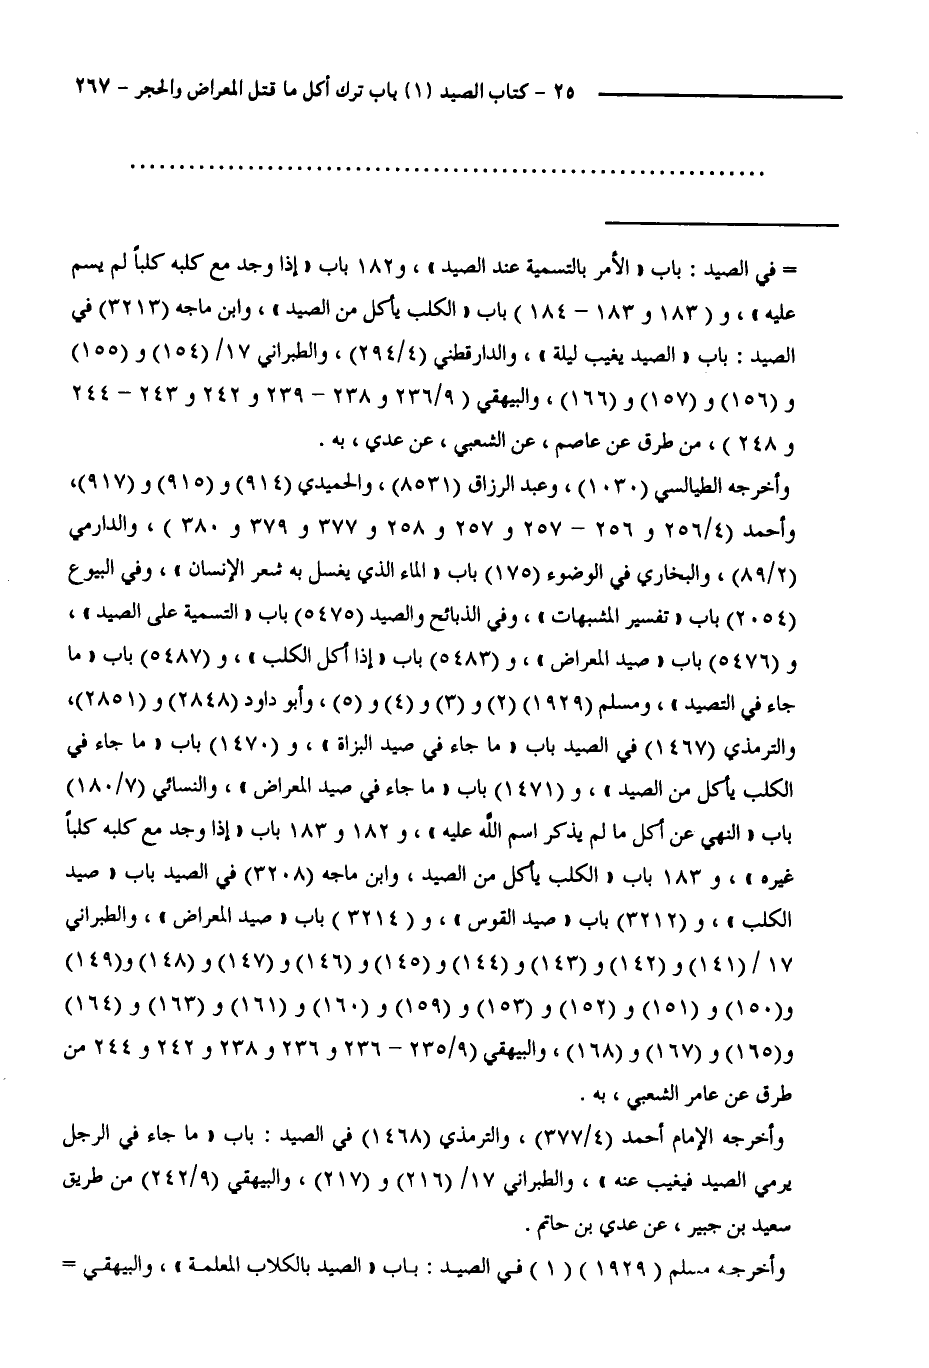 ٢٥ - كتاب الصيد (١) باب ترك أكل ما قتل المعراض والحجر - ٢٦٧
= في الصيد : باب « الأمر بالتسمية عند الصيد » ، و١٨٢ باب « إذا وجد مع كلبه كلباً لم يسم
عليه » ، و ( ١٨٣ و ١٨٣ - ١٨٤ ) باب « الكلب يأكل من الصيد » ، وابن ماجه (٣٢١٣) في
الصيد : باب « الصيد يغيب ليلة » ، والدارقطني (٢٩٤/٤) ، والطبراني ١٧/ (١٥٤) و (١٥٥)
و (١٥٦) و (١٥٧) و (١٦٦) ، والبيهقي ( ٢٣٦/٩ و ٢٣٨ - ٢٣٩ و ٢٤٢ و ٢٤٣ - ٢٤٤
و ٢٤٨ ) ، من طرق عن عاصم ، عن الشعبي ، عن عدي ، به .
وأخرجه الطيالسي (١٠٣٠) ، وعبد الرزاق (٨٥٣١) ، والحميدي (٩١٤) و (٩١٥) و (٩١٧)،
وأحمد (٢٥٦/٤ و ٢٥٦ - ٢٥٧ و ٢٥٧ و ٢٥٨ و ٣٧٧ و ٣٧٩ و ٣٨٠ ) ، والدارمي
(٨٩/٢) ، والبخاري في الوضوء (١٧٥) باب « الماء الذي يغسل به شعر الإنسان » ، وفي البيوع
(٢٠٥٤) باب « تفسير المشبهات » ، وفي الذبائح والصيد (٥٤٧٥) باب « التسمية على الصيد » ،
و (٥٤٧٦) باب « صيد المعراض » ، و (٥٤٨٣) باب « إذا أكل الكلب » ، و (٥٤٨٧) باب « ما
جاء في التصيد » ، ومسلم (١٩٢٩) (٢) و (٣) و (٤) و (٥) ، وأبو داود (٢٨٤٨) و (٢٨٥١)،
والترمذي (١٤٦٧) في الصيد باب « ما جاء في صيد البزاة » ، و (١٤٧٠) باب « ما جاء في
الكلب يأكل من الصيد » ، و (١٤٧١) باب « ما جاء في صيد المعراض » ، والنسائي (١٨٠/٧)
باب « النهي عن أكل ما لم يذكر اسم الله عليه » ، و ١٨٢ و ١٨٣ باب « إذا وجد مع كلبه كلباً
غيره » ، و ١٨٣ باب « الكلب يأكل من الصيد ، وابن ماجه (٣٢٠٨) في الصيد باب « صيد
الكلب » ، و (٣٢١٢) باب « صيد القوس » ، و ( ٣٢١٤ ) باب « صيد المعراض » ، والطبراني
١٧ / (١٤١) و (١٤٢) و (١٤٣) و (١٤٤) و (١٤٥) و (١٤٦) و (١٤٧) و (١٤٨) و(١٤٩)
و(١٥٠) و (١٥١) و (١٥٢) و (١٥٣) و (١٥٩) و (١٦٠) و (١٦١) و (١٦٣) و (١٦٤)
و(١٦٥) و (١٦٧) و (١٦٨) ، والبيهقي (٢٣٥/٩ - ٢٣٦ و ٢٣٦ و ٢٣٨ و ٢٤٢ و ٢٤٤ من
طرق عن عامر الشعبي ، به .
وأخرجه الإمام أحمد (٣٧٧/٤) ، والترمذي (١٤٦٨) في الصيد : باب « ما جاء في الرجل
يرمي الصيد فيغيب عنه » ، والطبراني ١٧/ (٢١٦) و (٢١٧) ، والبيهقي (٢٤٢/٩) من طريق
سعيد بن جبير ، عن عدي بن حاتم .
وأخرجه مسلم ( ١٩٢٩ ) ( ١ ) في الصيد : باب « الصيد بالكلاب المعلمة » ، والبيهقي =